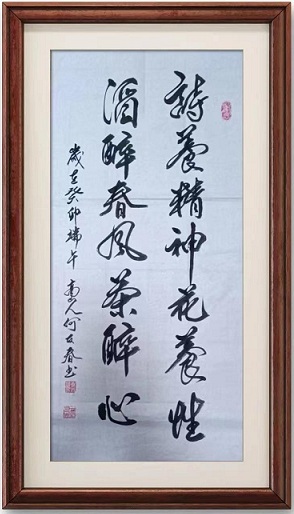 詩養精神花養性
酒醉春风茶醉心
歲在癸卯端午 何友春书